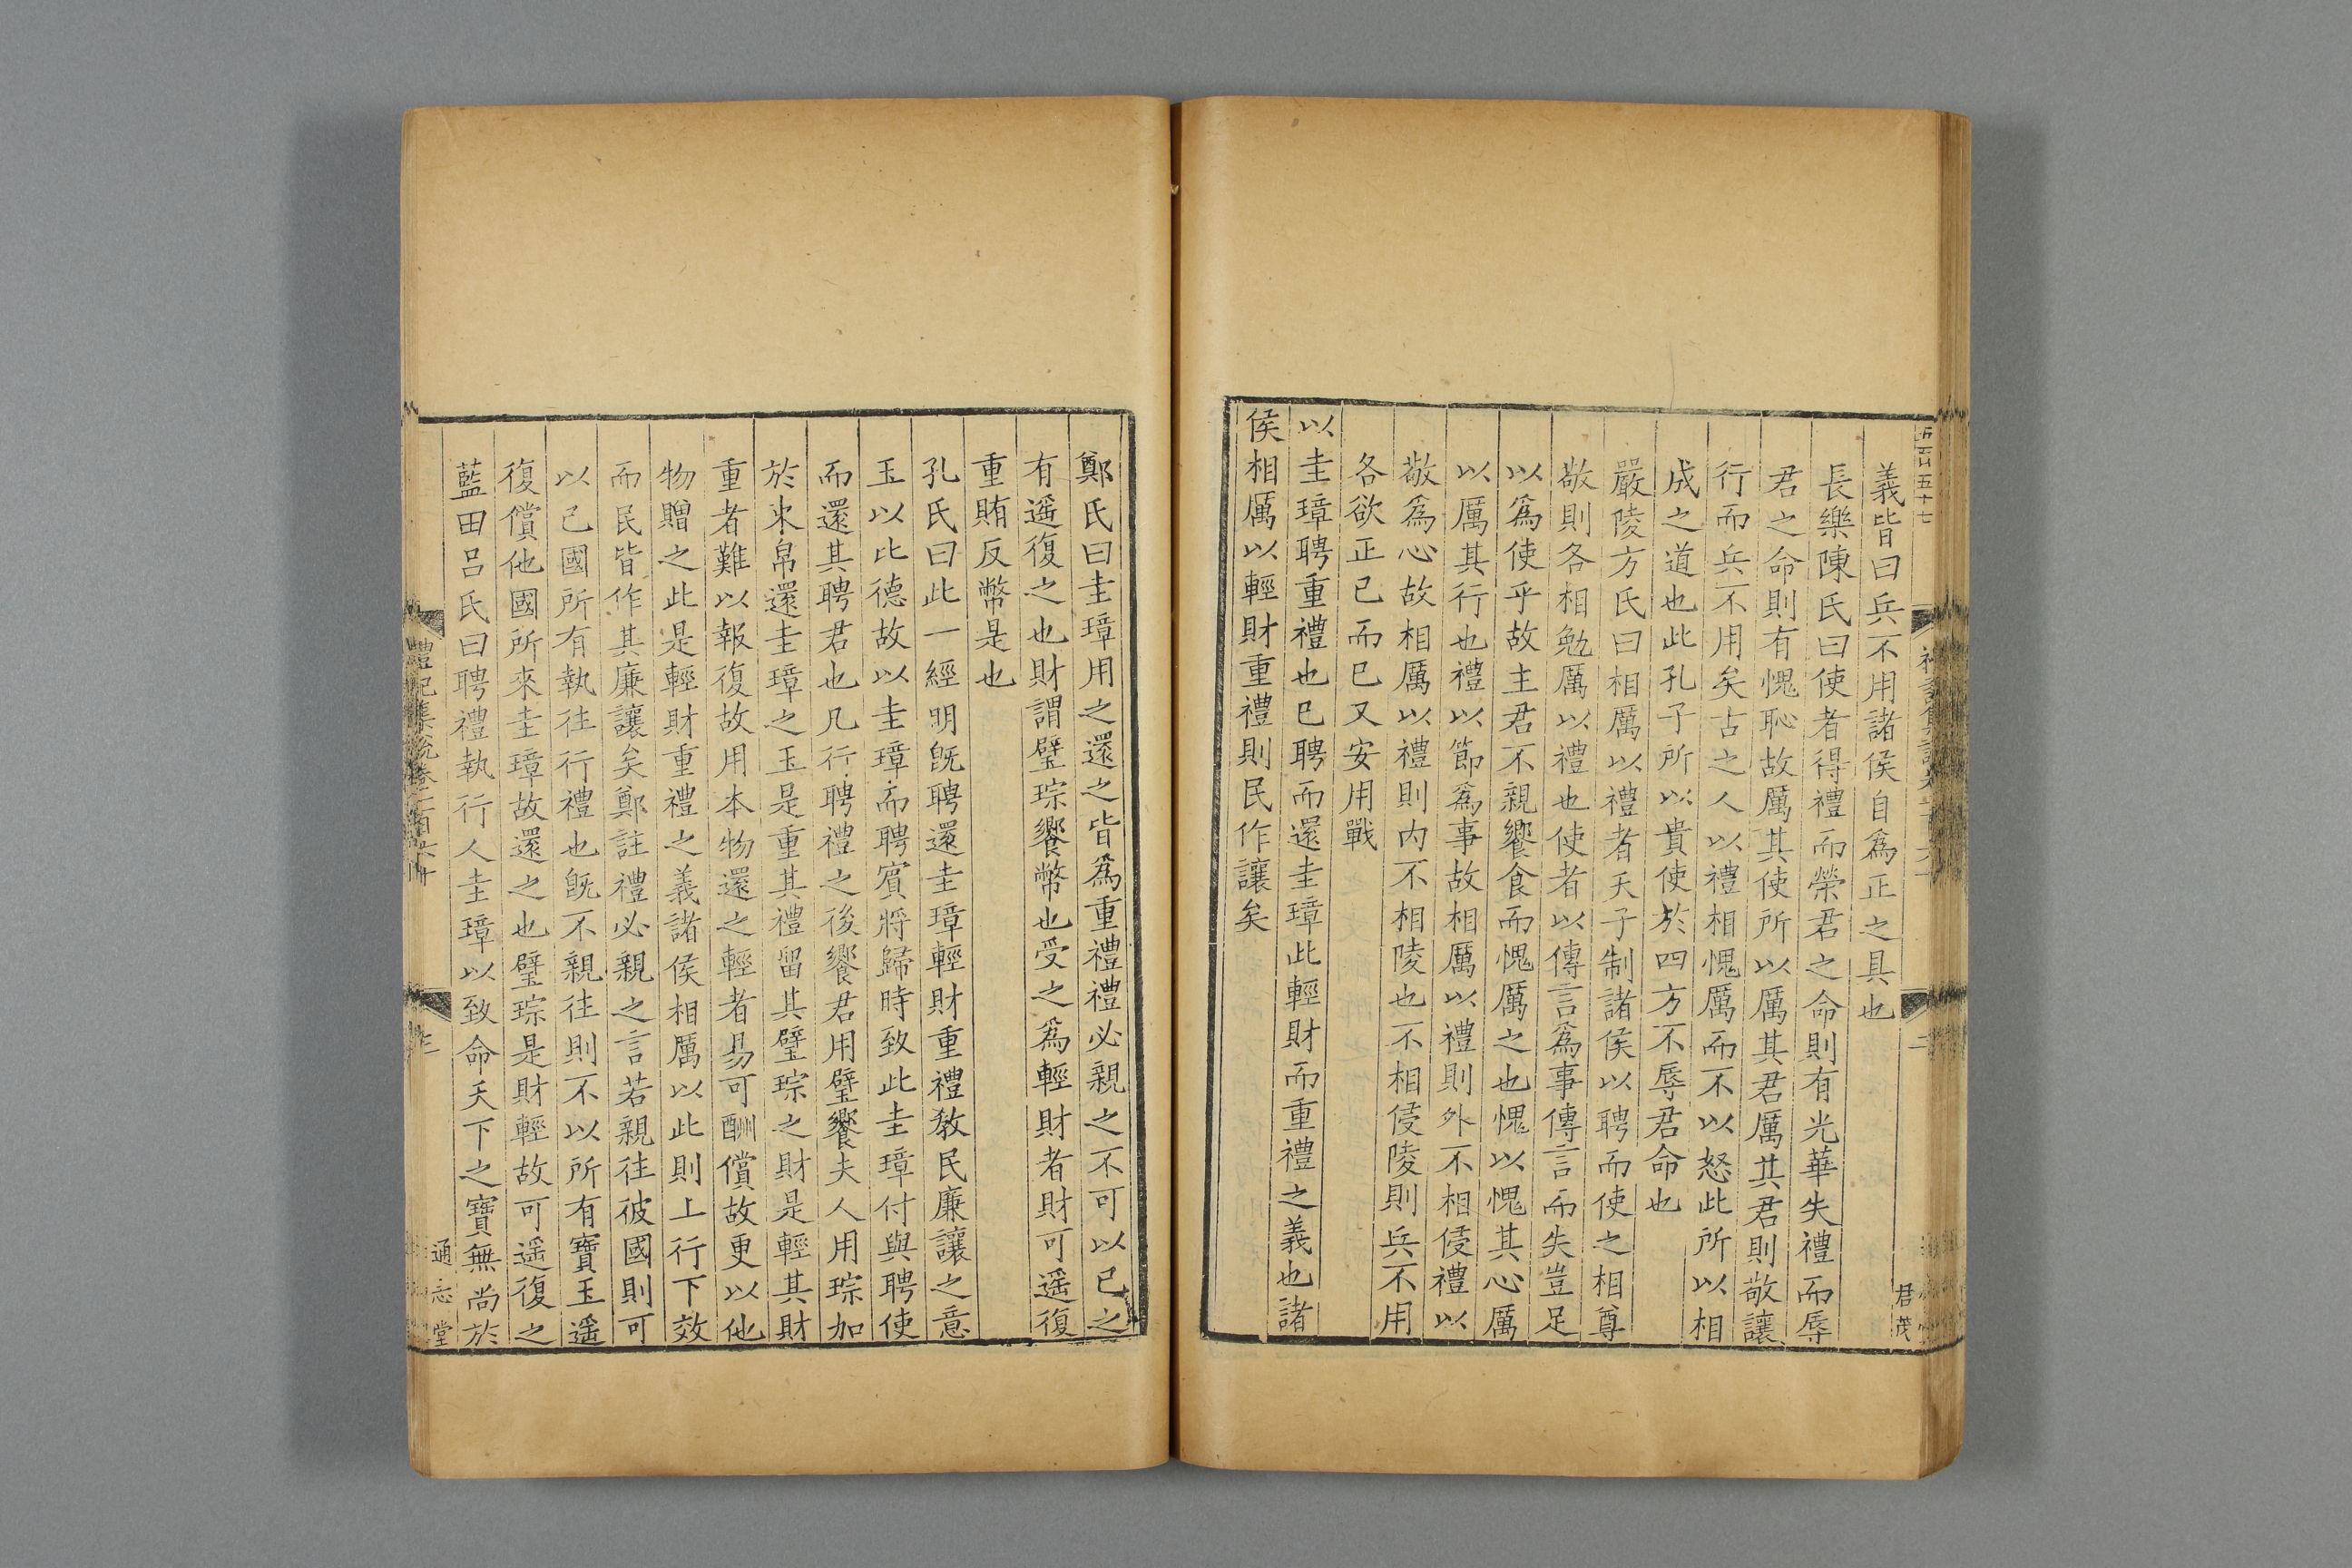 義皆曰兵不用諸侯自爲正之具也
長樂陳氏曰使者得禮而榮君之命則有光華失禮而辱
君之命則有愧恥故厲其使所以厲其君厲其君則敬讓
行而兵不用矣古之人以禮相愧厲而不以怒此所以相
成之道也此孔子所以貴使於四方不辱君命也
嚴陵方氏曰相厲以禮者天子制諸侯以聘而使之相尊
敬則各相勉厲以禮也使者以傳言爲事傳言而失豈足
以爲使乎故主君不親饗食而愧厲之也愧以愧其心厲
以厲其行也禮以節爲事故相厲以禮則外不相侵禮以
敬爲心故相厲以禮則内不相陵也不相侵陵則兵不用
各欲正已而已又安用戰
以圭璋聘重禮也已聘而還圭璋此輕財而重禮之義也諸
侯相厲以輕財重禮則民作讓矣
君茂
鄭氏曰圭璋用之還之皆爲重禮禮必親之不可以已之
有遥復之也財謂璧琮饗幣也受之爲輕財者財可遥復
重賄反幣是也
孔氏曰此一經明旣聘還圭璋輕財重禮敎民廉讓之意
玉以比德故以圭璋而聘賔將歸時致此圭璋付與聘使
而還其聘君也凡行聘禮之後饗君用璧饗夫人用琮加
於束帛還圭璋之玉是重其禮留其璧琮之財是輕其財
重者難以報復故用本物還之輕者易可酬償故更以他
物贈之此是輕財重禮之義諸侯相厲以此則上行下效
而民皆作其廉讓矣鄭註禮必親之言若親往彼國則可
以己國所有執往行禮也旣不親往則不以所有寶玉遥
復償他國所來圭璋故還之也璧琮是財輕故可遥復之
藍田吕氏曰聘禮執行人圭璋以致命天下之寶無尚於
禮記集說卷一百六十
三
通志堂